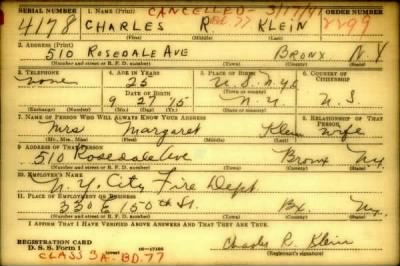 SERIAL NUMBER 1. NAME (Print) CANCELLED- 3/17/41 ORDER NUMBER
4178 CHARLES R. KLEIN BD.77 2299
(First) (Middle) (Last)
2. ADDRESS (Print)
510 ROSEDALE AVE BRONX N.Y
(Number and street or R. F. D. number) (Town) (County) (State)
3. TELEPHONE 4. AGE IN YEARS 5. PLACE OF BIRTH 6. COUNTRY OF CITIZENSHIP
none 25 N.Y.C
DATE OF BIRTH (Town or county)
9 27 15 N.Y. U.S.
(Exchange) (Number) (Mo.) (Day) (Yr.) (State or country)
7. NAME OF PERSON WHO WILL ALWAYS KNOW YOUR ADDRESS 8. RELATIONSHIP OF THAT PERSON
Mrs Margaret Klein wife
(Mr., Mrs., Miss) (First) (Middle) (Last)
9. ADDRESS OF THAT PERSON
510 Rosedale Ave Bronx Ny.
(Number and street or R. F. D. number) (Town) (County) (State)
10. EMPLOYER'S NAME
N.Y. City Fire Dept.
11. PLACE OF EMPLOYMENT OR BUSINESS
330 E 150th St. Bx. Ny.
(Number and street or R. F. D. number) (Town) (County) (State)
I AFFIRM THAT I HAVE VERIFIED ABOVE ANSWERS AND THAT THEY ARE TRUE.
REGISTRATION CARD Charles R. Klein
D. S. S. Form 1 (Registrant's signature)
CLASS 3A-BD.77